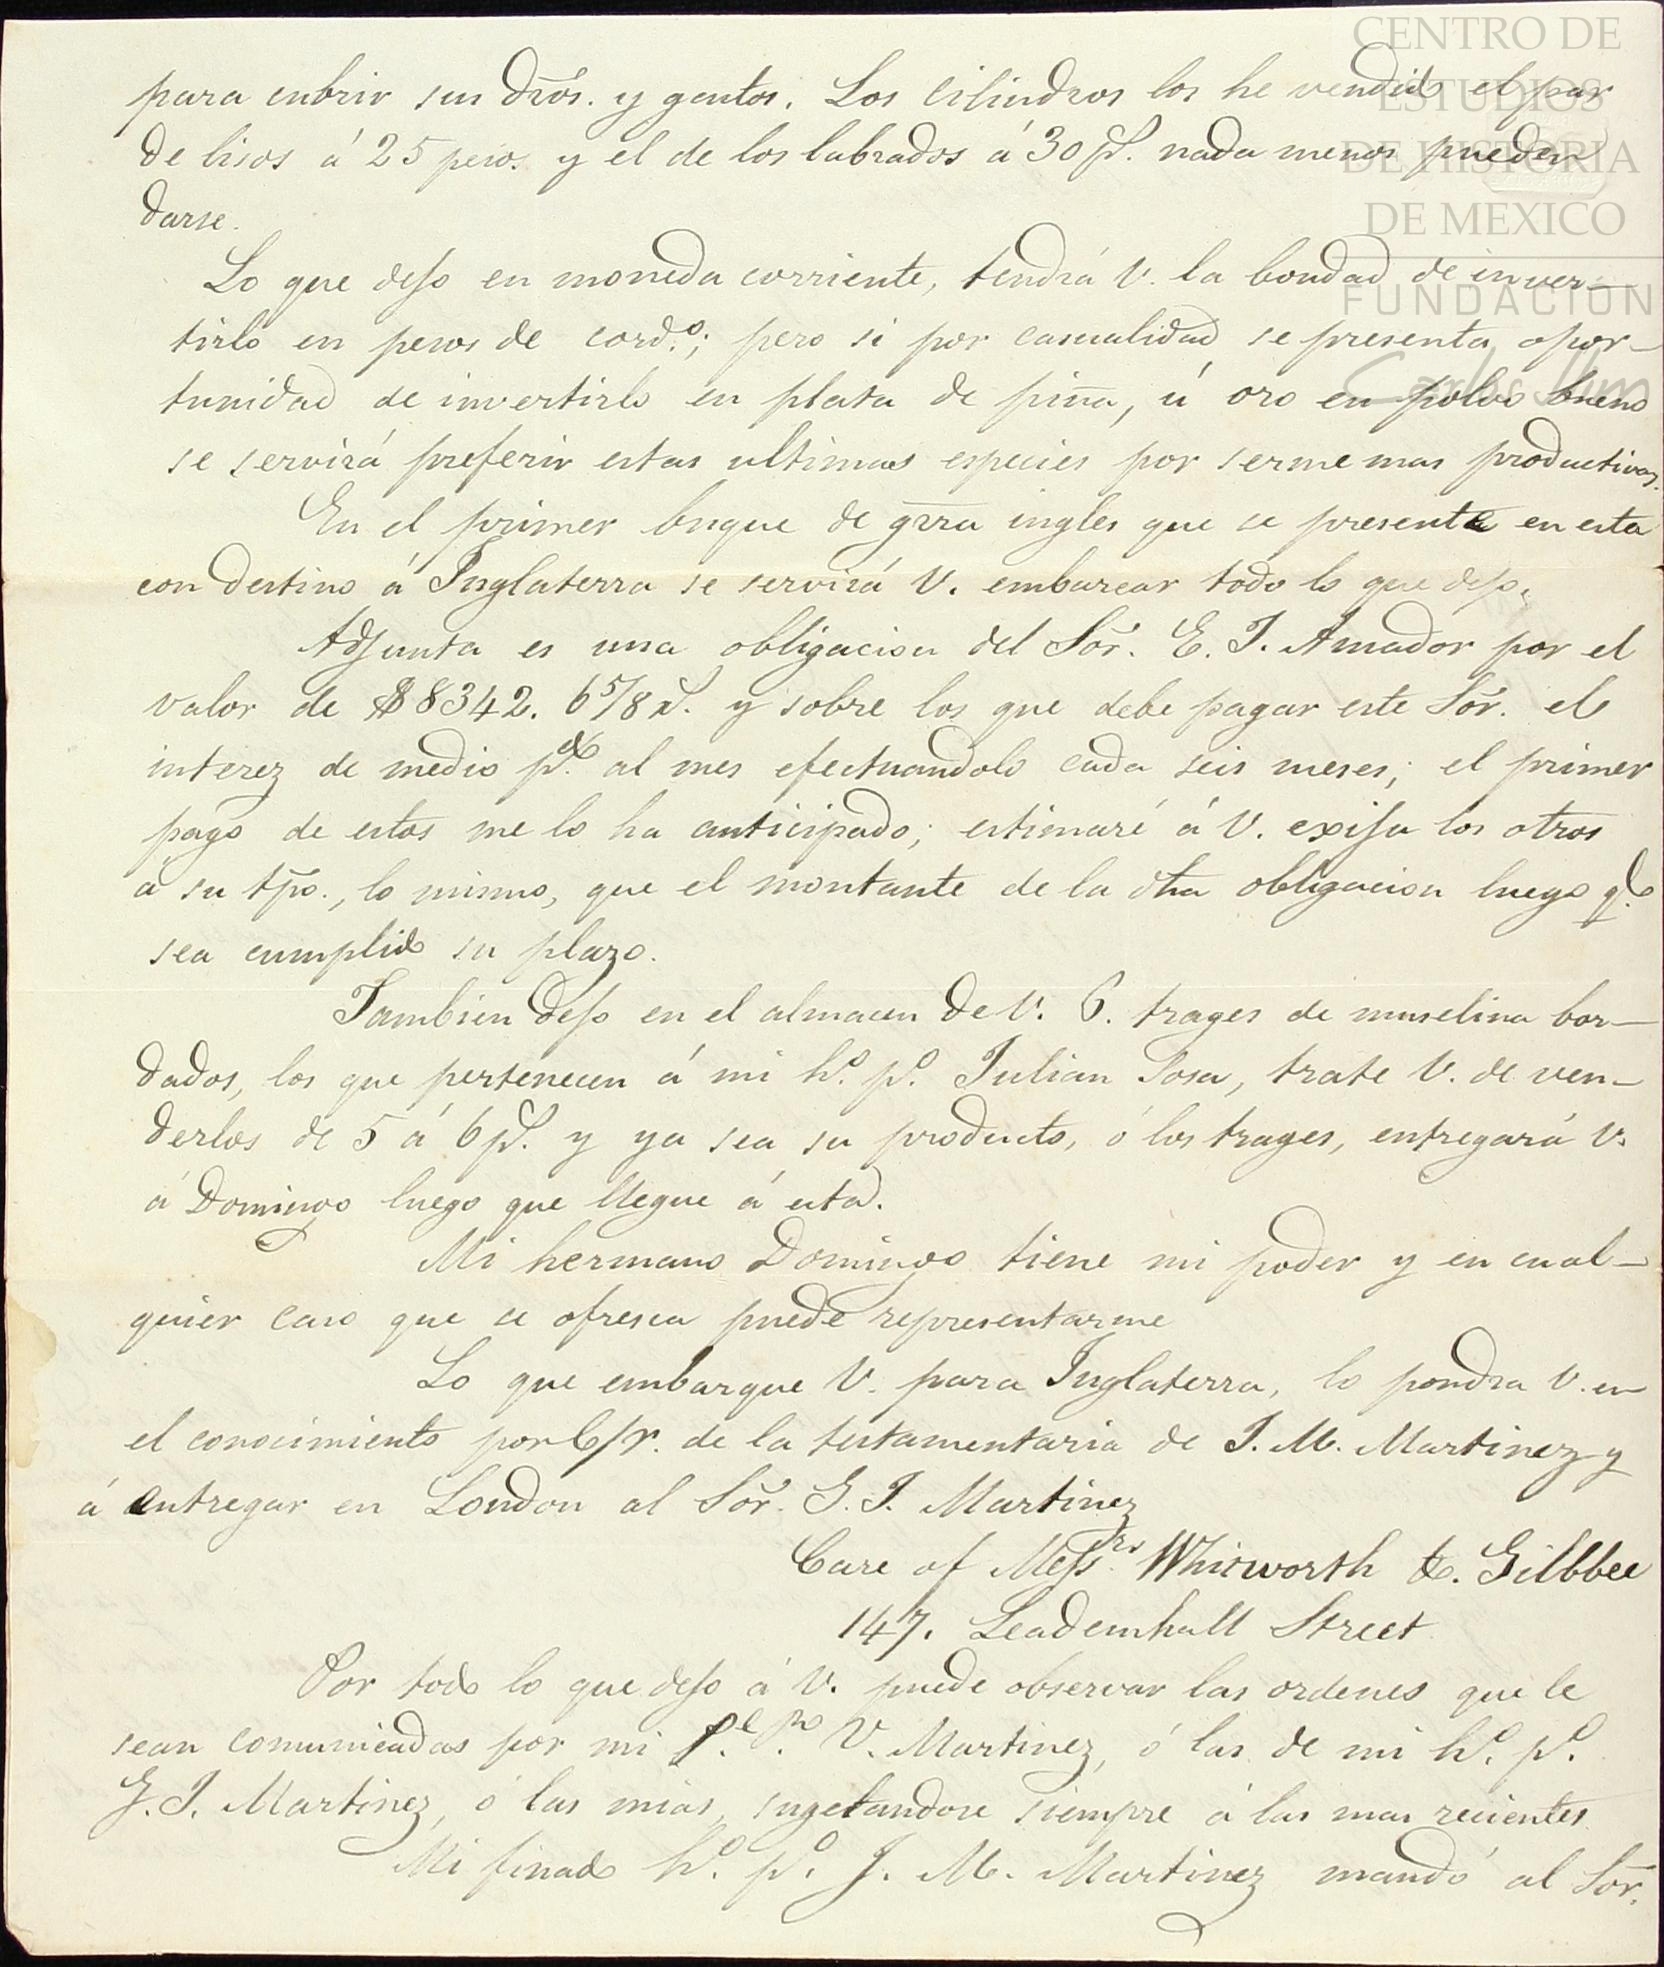 CENTRO DE
ESTUDIOS
DE HISTORIA
DE MEXICO
FUNDACION
Carlos Slim
para cubrir sus drõs. y gastos. Los cilindros los he vendido el par
de lisos á 25 pesos. y el de los labrados á 30 p.s nada menos pueden
darse.
Lo que dejo en moneda corriente, tendrá V. la bondad de inver-
tirlo en pesos de cord.o; pero si por casualidad se presenta opor-
tunidad de invertirlo en plata de piña, ú oro en polvo bueno
se servirá preferir estas ultimas especies por serme mas productivas.
En el primer buque de grra ingles que se presente en esta
con destino á Inglaterra se servirá V. embarcar todo lo que dejo.
Adjunta es una obligacion del Sõr. E. J. Amador por el
valor de $8342. 6 5/8 r.s y sobre los que debe pagar este Sõr. el
interez de medio p.% al mes efectuandolo cada seis meses; el primer
pago de estos me lo ha anticipado; estimaré á V. exija los otros
á su tpo., lo mismo, que el montante de la dha obligacion luego q.e
sea cumplido su plazo.
Tambien dejo en el almacen de V. 6. trages de muselina bor-
dados, los que pertenecen á mi h.o p.o Julian Sosa, trate V. de ven-
derlos de 5 á 6 p.s y ya sea su producto, ó los trages, entregará V.
á Domingo luego que llegue á esta.
Mi hermano Domingo tiene mi poder y en cual-
quier caso que se ofresca puede representarme
Lo que embarque V. para Inglaterra, lo pondra V. en
el conocimiento por C/r. de la testamentaria de J. M. Martinez y
á entregar en London al Sõr. G. J. Martinez
Care of Mess.rs Whitworth &. Gilbbee
147. Leademhall Street
Por todo lo que dejo á V. puede observar las ordenes que le
sean comunicadas por mi V. Martinez, ó las de mi h.o p.o
G. J. Martinez, ó las mias, sugetandose siempre á las mas recientes
Mi finado h.o p.o J. M. Martinez mandó al Sõr.